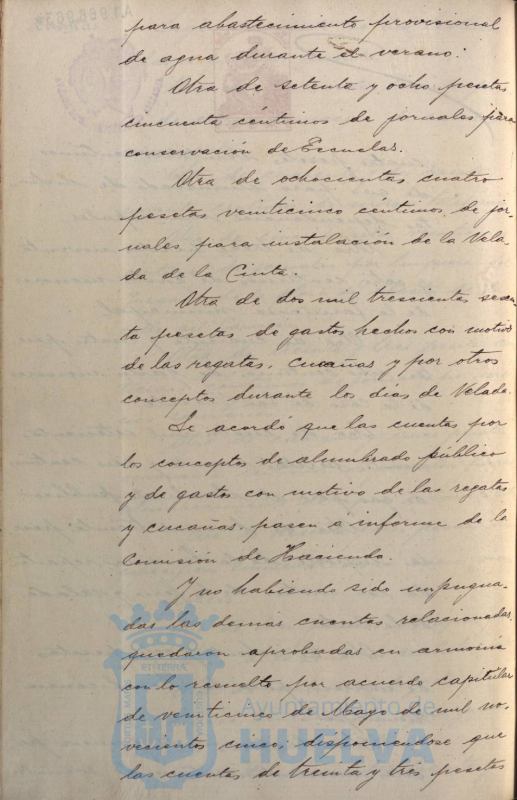 para abastecimiento provisional
de agua durante el verano.
Otra de setenta y ocho pesetas
cincuenta céntimos de jornales para
conservación de Escuelas.
Otra de ochocientas cuatro
pesetas veinticinco céntimos de jor-
nales para instalación de la Vela-
da de la Cinta.
Otra de dos mil trescientas sesen-
ta pesetas de gastos hechos con motivo
de las regatas, cucañas y por otros
conceptos durante los días de Velada.
Se acordó que las cuentas por
los conceptos de alumbrado público
y de gastos con motivo de las regatas
y cucañas pasen á informe de la
Comisión de Hacienda.
Y no habiendo sido impugna-
das las demás cuentas relacionadas,
quedaron aprobadas en armonía
con lo resuelto por acuerdo capitular
de veinticinco de Mayo de mil no-
vecientos cinco, disponiendose que
las cuentas de treinta y tres pesetas
Ayuntamiento de
HUELVA